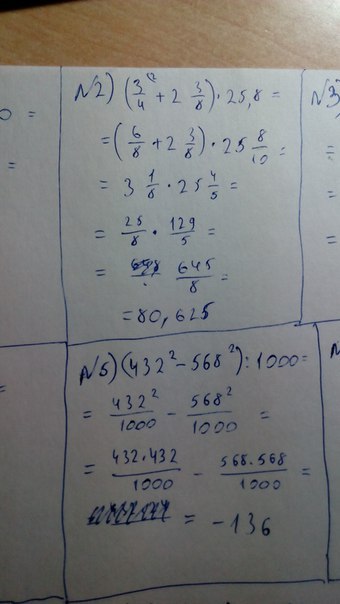 N2) (3/4 + 2 3/8) · 25,8 =
= (6/8 + 2 3/8) · 25 8/10 =
= 3 1/8 · 25 4/5 =
= 25/8 · 129/5 =
= 645/8 =
= 80,625
N5) (432² - 568²) : 1000 =
= 432²/1000 - 568²/1000 =
= 432·432/1000 - 568·568/1000 =
= -136
0 =
=
=
N3)
=
=
=